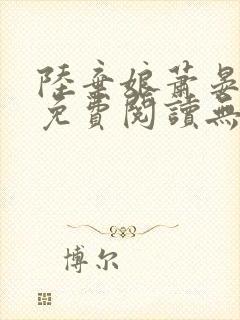 陸棄娘蕭晏
免費閱讀無
博尔